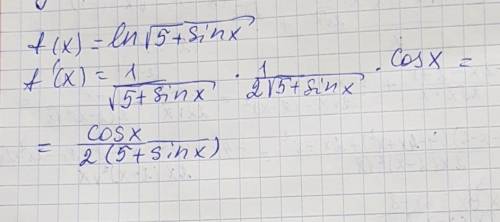 f(x) = ln√(5+sinx)
f'(x) = 1/√(5+sinx) · 1/(2√(5+sinx)) · cosx =
= cosx/(2(5+sinx))